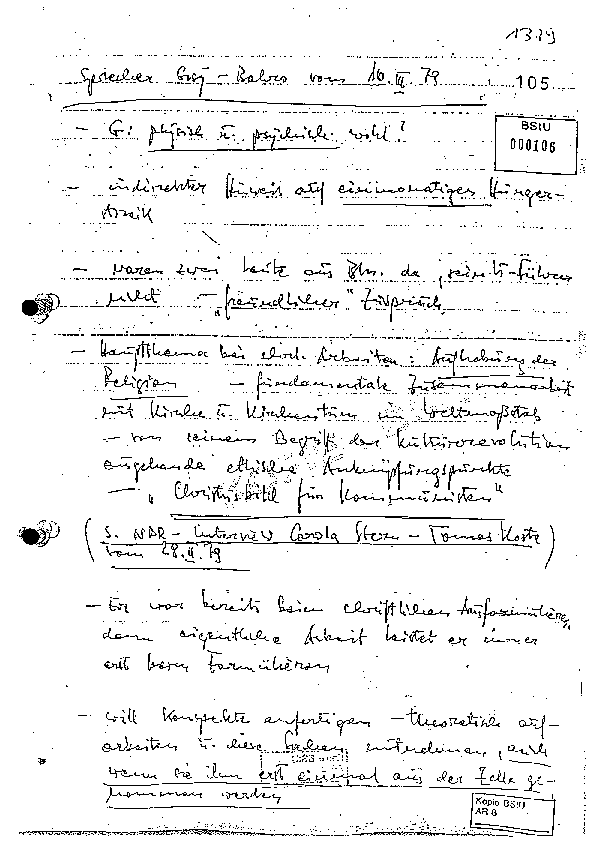 1379
Sprecher Gysi - Bahro vom 16. III. 79
105
BStU
000106
- G: physisch u. psychisch wohl?
- indirekter Hinweis auf einmonatigen Hunger-
streik
- waren zwei Leute aus Bln. da,
nicht - "freundlicher" Zuspruch
- Hauptthema bei Arbeiten: Aufhebung der
Religion - fundamentale Zusammenarbeit
mit Kirche u. Kirchen im Weltmaßstab
- von seinem Begriff der Kulturrevolution
ausgehende ethische Anknüpfungspunkte
- "Christusbild für Kommunisten"
(s. NDR - Interview Carola Stern - Tomas Kosta
vom 28. II. 79)
- Er war bereits beim schriftlichen Ausformulieren,
denn eigentliche Arbeit leistet er immer
erst beim Formulieren
- will Konspekte anfertigen - theoretisch auf-
arbeiten u. diese Sachen mitnehmen, auch
wenn sie ihm erst einmal aus der Zelle ge-
nommen werden
Kopie BStU
AR 8